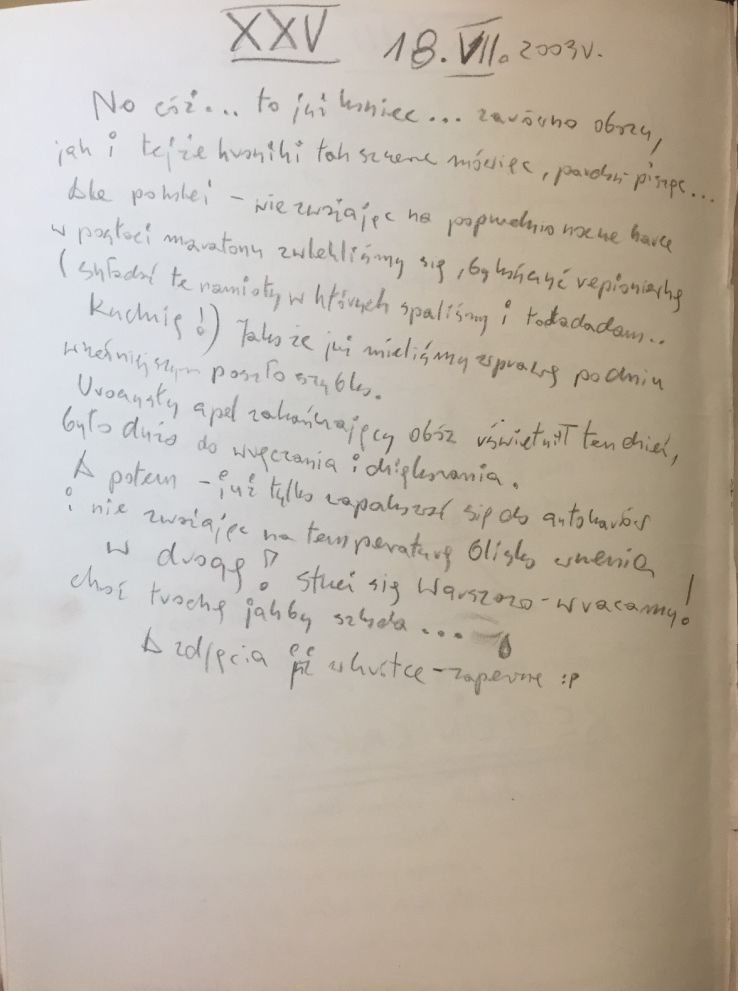 XXV 18.VII.2003r.
No cóż... to już koniec... zarówno obozu,
jak i tejże kroniki tak szczerze mówiąc, pardon-pisząc...
Ale po kolei - nie zważając na poprzednio nocne harce
w postaci maratonu zwlekliśmy się, by
(składać te namioty w których spaliśmy i
kuchnię!) Jako że już mieliśmy wprawę po dniu
wcześniejszym poszło szybko.
Uroczysty apel zakańczający obóz uświetnił ten dzień,
było dużo do wręczania i dziękowania.
A potem - już tylko zapakować się do autokarów
i nie zważając na temperaturę bliską wrzenia
w drogę! Strzeż się Warszawo - wracamy!
choć trochę jakby szkoda...
A zdjęcia wkrótce - zapewne :P